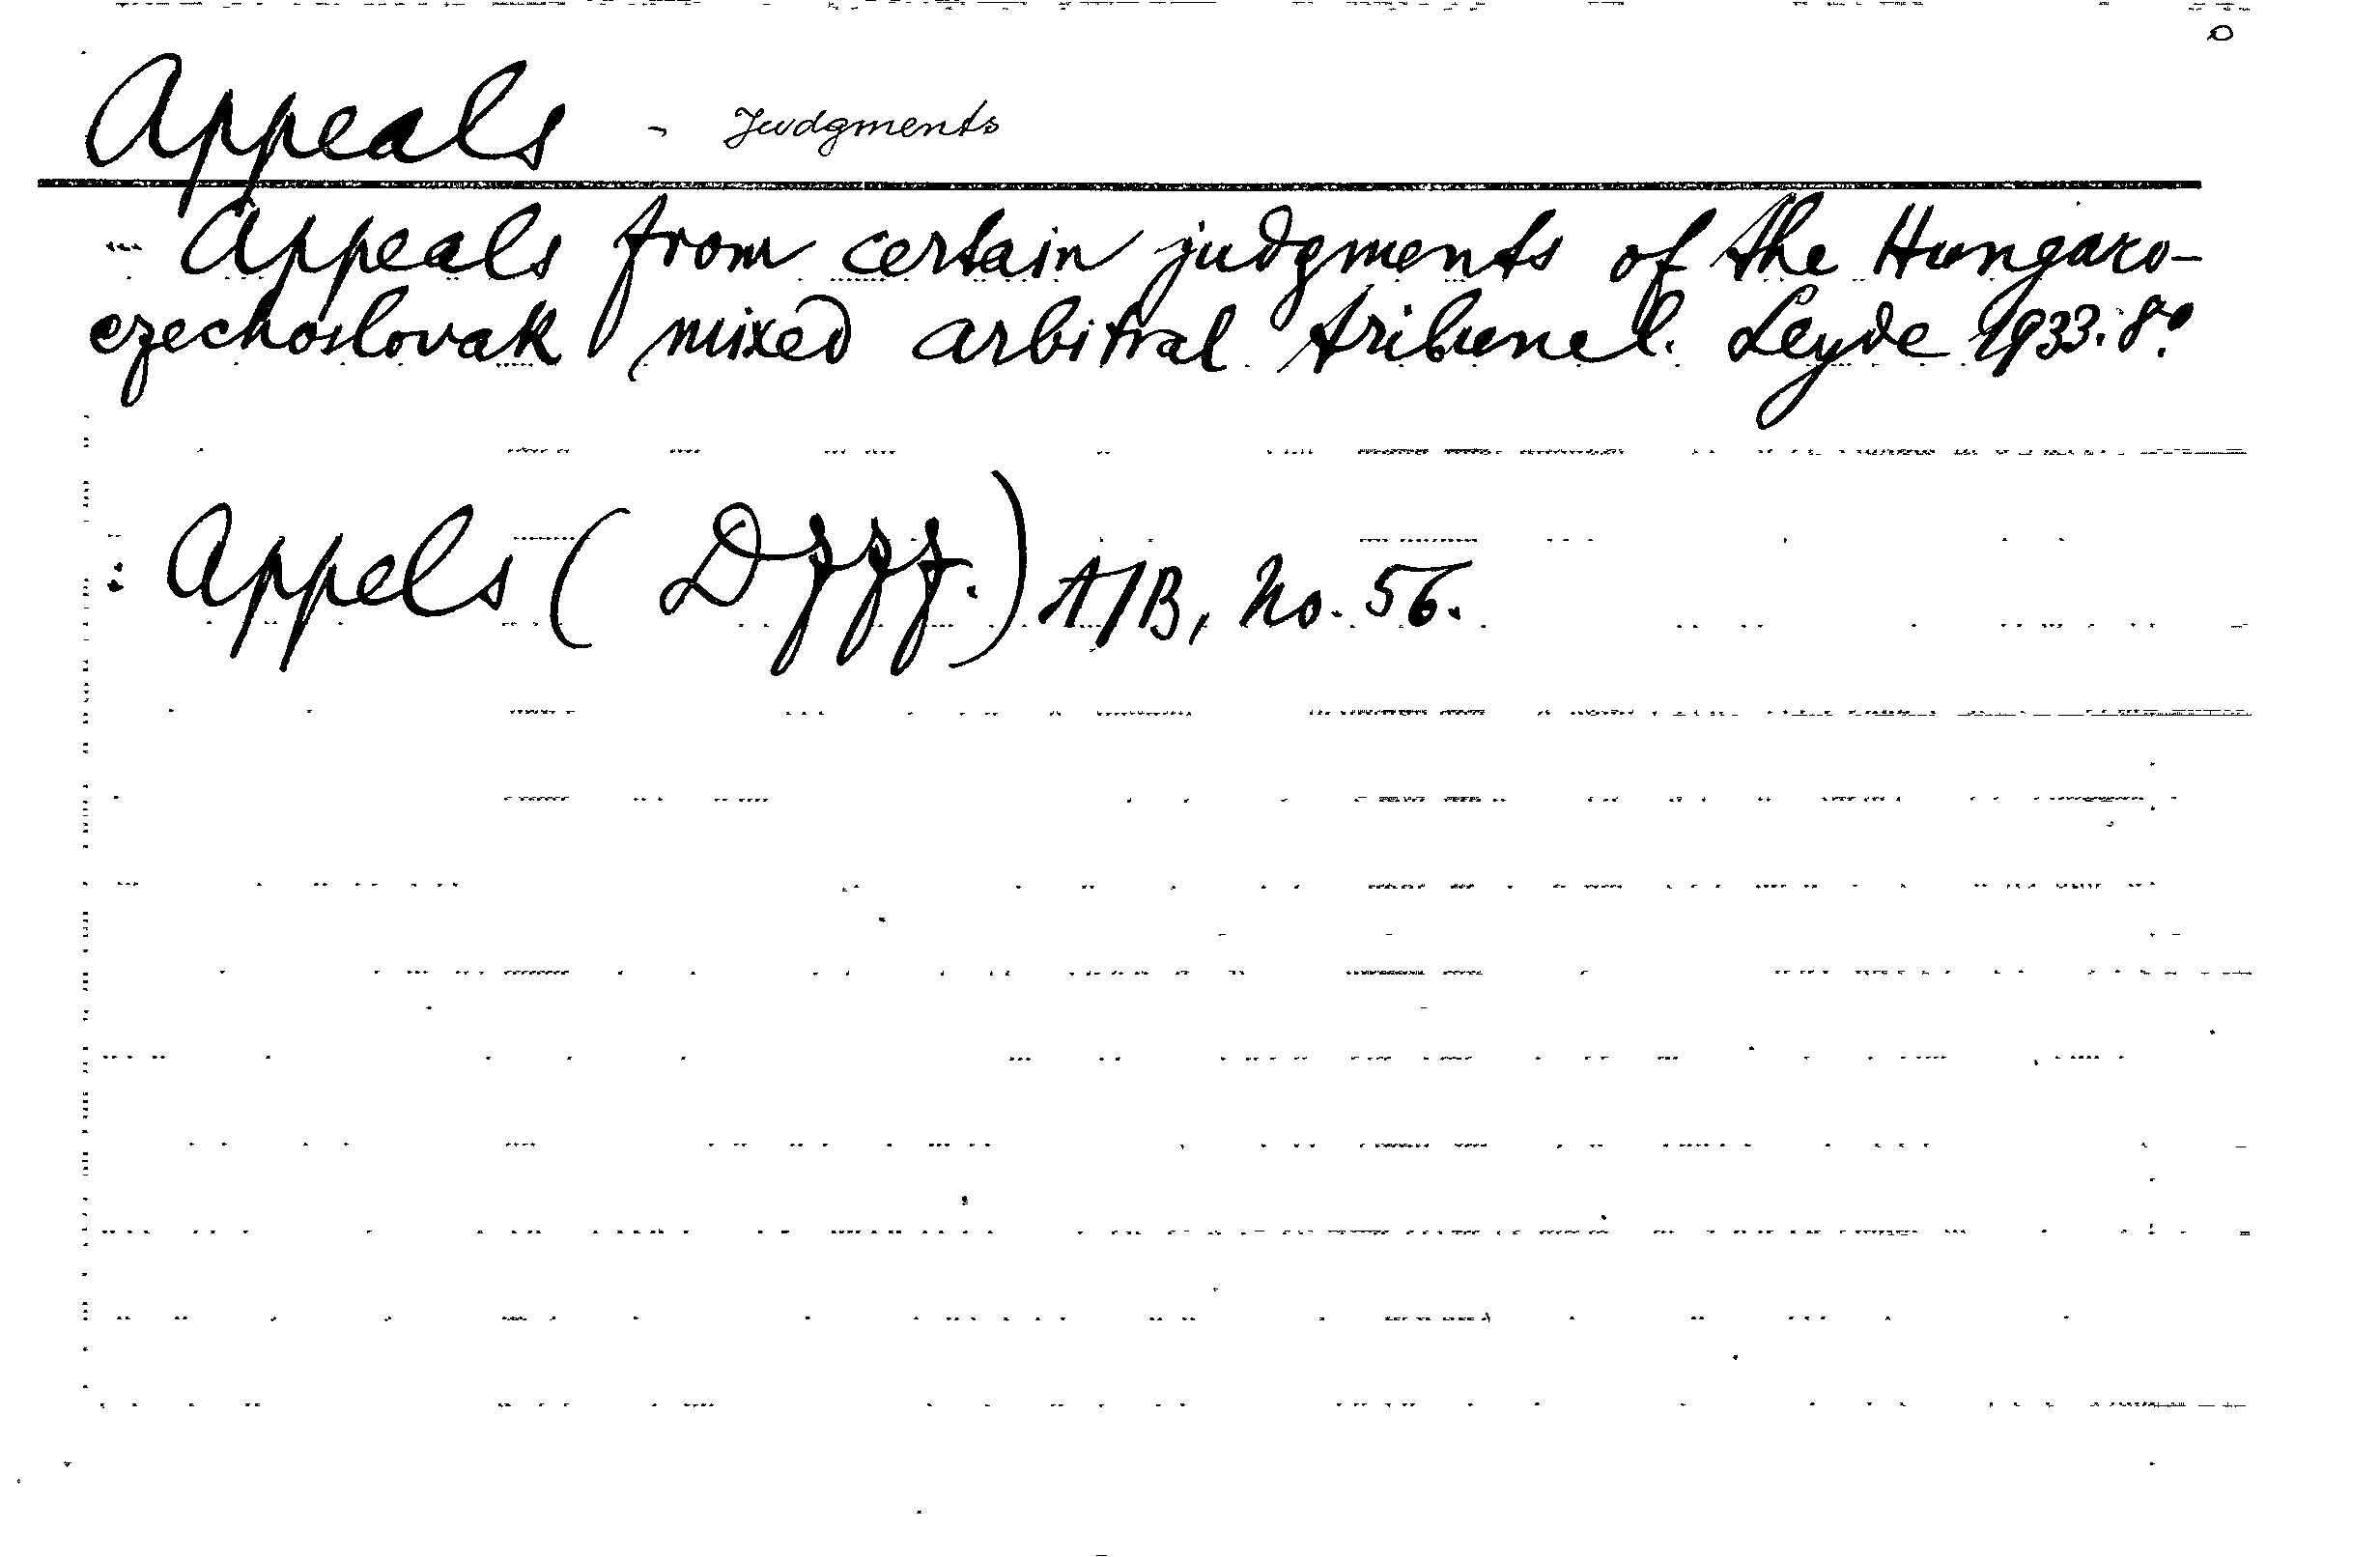 Appeals - Judgments
Appeals from certain judgments of the Hungaro-
czechoslovak mixed arbitral tribunal. Leyde 1933. 8º.
: Appels (DJJJ.) A/B, No. 56.